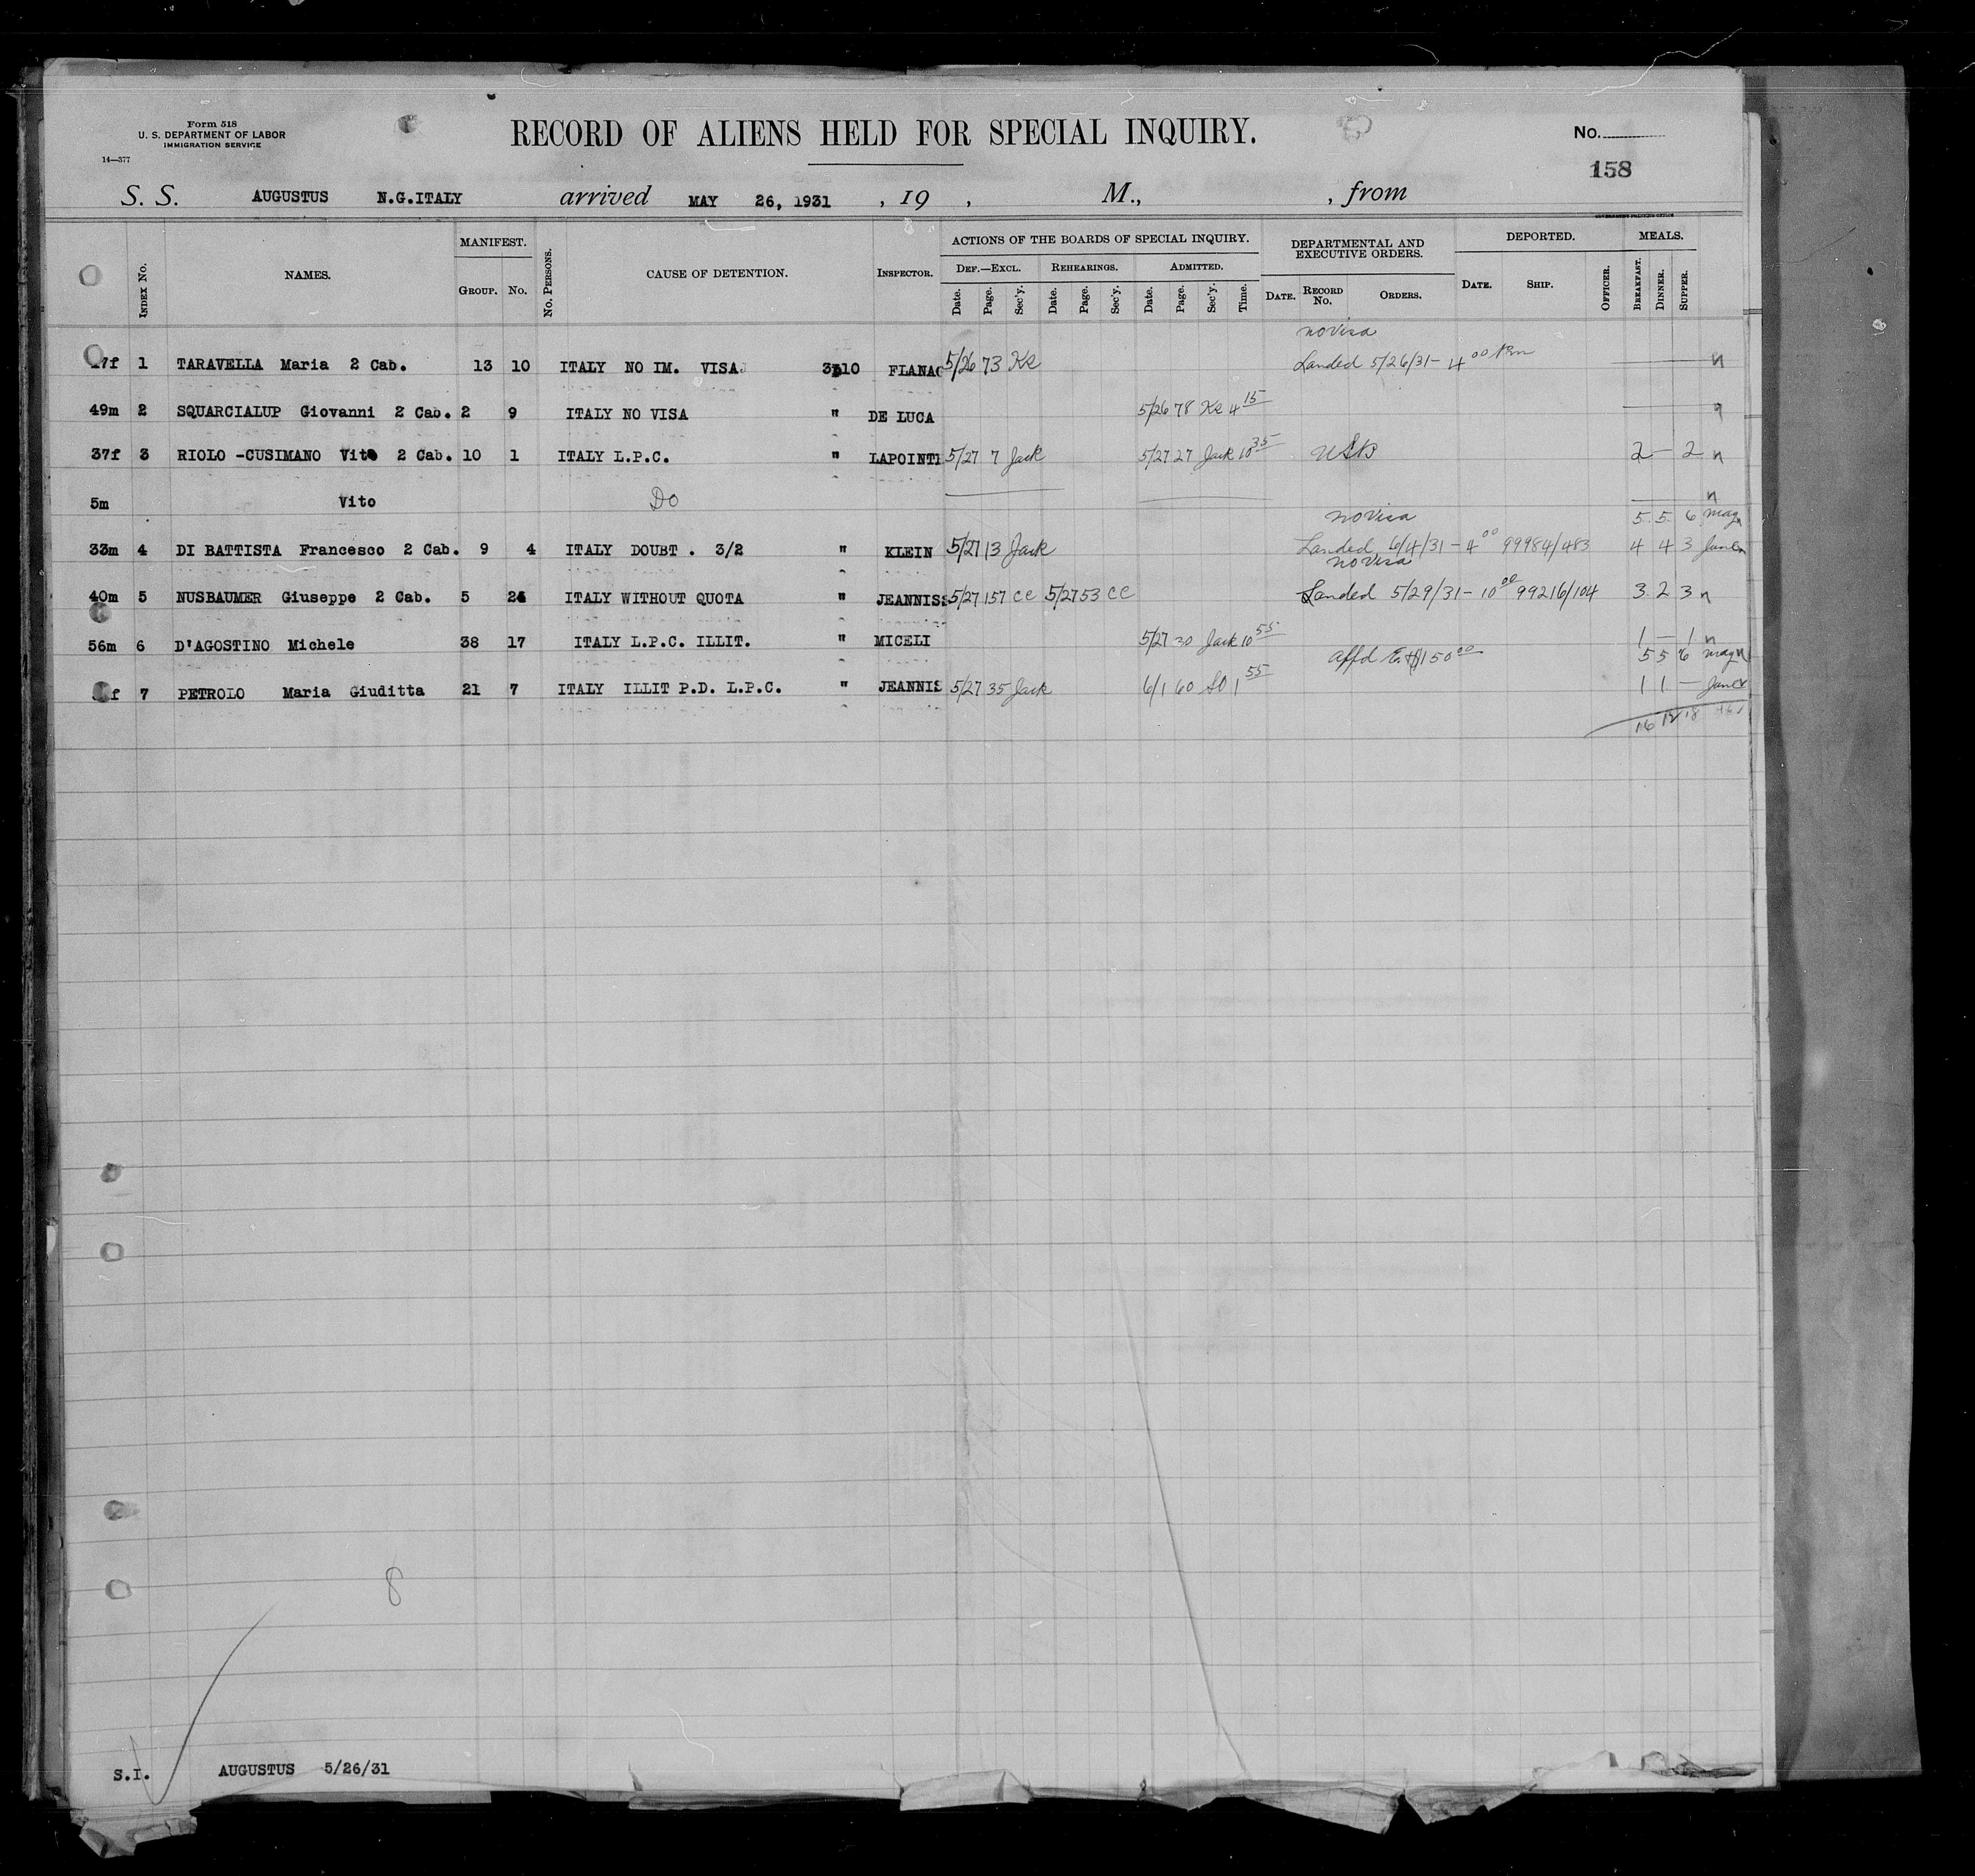 Form 518
U. S. DEPARTMENT OF LABOR
IMMIGRATION SERVICE
14—377
RECORD OF ALIENS HELD FOR SPECIAL INQUIRY.
No.
158
S. S. AUGUSTUS N.G.ITALY arrived MAY 26, 1931 , 19 , M., , from
GOVERNMENT PRINTING OFFICE
INDEX No. NAMES. MANIFEST. GROUP. No. No. PERSONS. CAUSE OF DETENTION. INSPECTOR. ACTIONS OF THE BOARDS OF SPECIAL INQUIRY. DEPARTMENTAL AND EXECUTIVE ORDERS. DEPORTED. MEALS.
DEF.—EXCL. REHEARINGS. ADMITTED.
Date. Page. Sec'y. Date. Page. Sec'y. Date. Page. Sec'y. Time. DATE. RECORD No. ORDERS. DATE. SHIP. OFFICER. BREAKFAST. DINNER. SUPPER.
no visa
7f 1 TARAVELLA Maria 2 Cab. 13 10 ITALY NO IM. VISA 3310 FLANAG 5/26 73 Ke Landed 5/26/31 - 4 00 Pm n
49m 2 SQUARCIALUP Giovanni 2 Cab. 2 9 ITALY NO VISA " DE LUCA 5/26 78 Ke 4 15 n
37f 3 RIOLO -CUSIMANO Vito 2 Cab. 10 1 ITALY L.P.C. " LAPOINTE 5/27 7 Jack 5/27 27 Jack 10 35 USB 2 — 2 n
5m Vito Do n
no visa 5 5 6 May n
33m 4 DI BATTISTA Francesco 2 Cab. 9 4 ITALY DOUBT . 3/2 " KLEIN 5/27 13 Jack Landed 6/4/31 - 4 00 99984/483 4 4 3 June n
no visa
40m 5 NUSBAUMER Giuseppe 2 Cab. 5 24 ITALY WITHOUT QUOTA " JEANNISS 5/27 157 CC 5/27 53 CC Landed 5/29/31 - 10 00 99216/104 3 2 3 n
56m 6 D'AGOSTINO Michele 38 17 ITALY L.P.C. ILLIT. " MICELI 5/27 30 Jack 10 55 1 — 1 n
Affd 150 00 5 5 6 May n
f 7 PETROLO Maria Giuditta 21 7 ITALY ILLIT P.D. L.P.C. " JEANNIS 5/27 35 Jack 6/1 60 SO 1 55 1 1 — June
16 12 18
8
S.I. AUGUSTUS 5/26/31